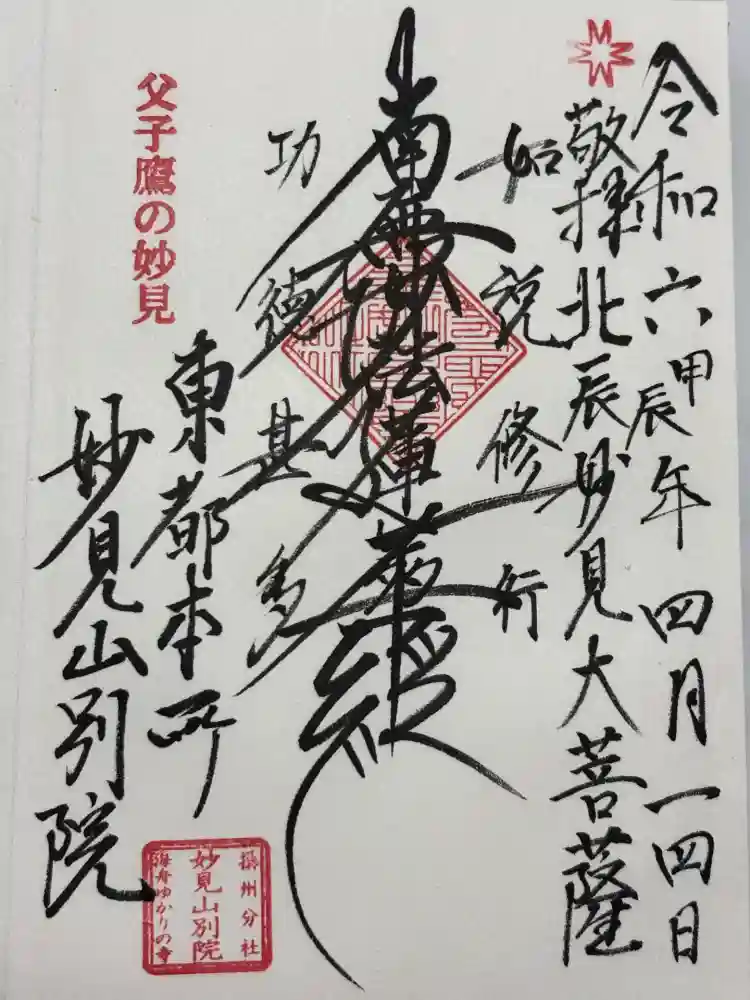 令和六甲辰年四月一四日
敬拝北辰妙見大菩薩
如説修行
南無妙法蓮華経
功徳甚多
父子鷹の妙見
東都本所
妙見山別院
摂州分社
妙見山別院
海舟ゆかりの寺